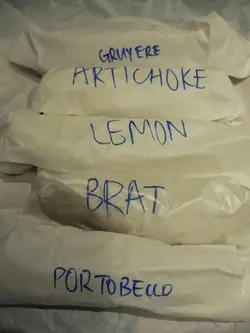 GRUYERE
ARTICHOKE
LEMON
BRAT
PORTOBELLO